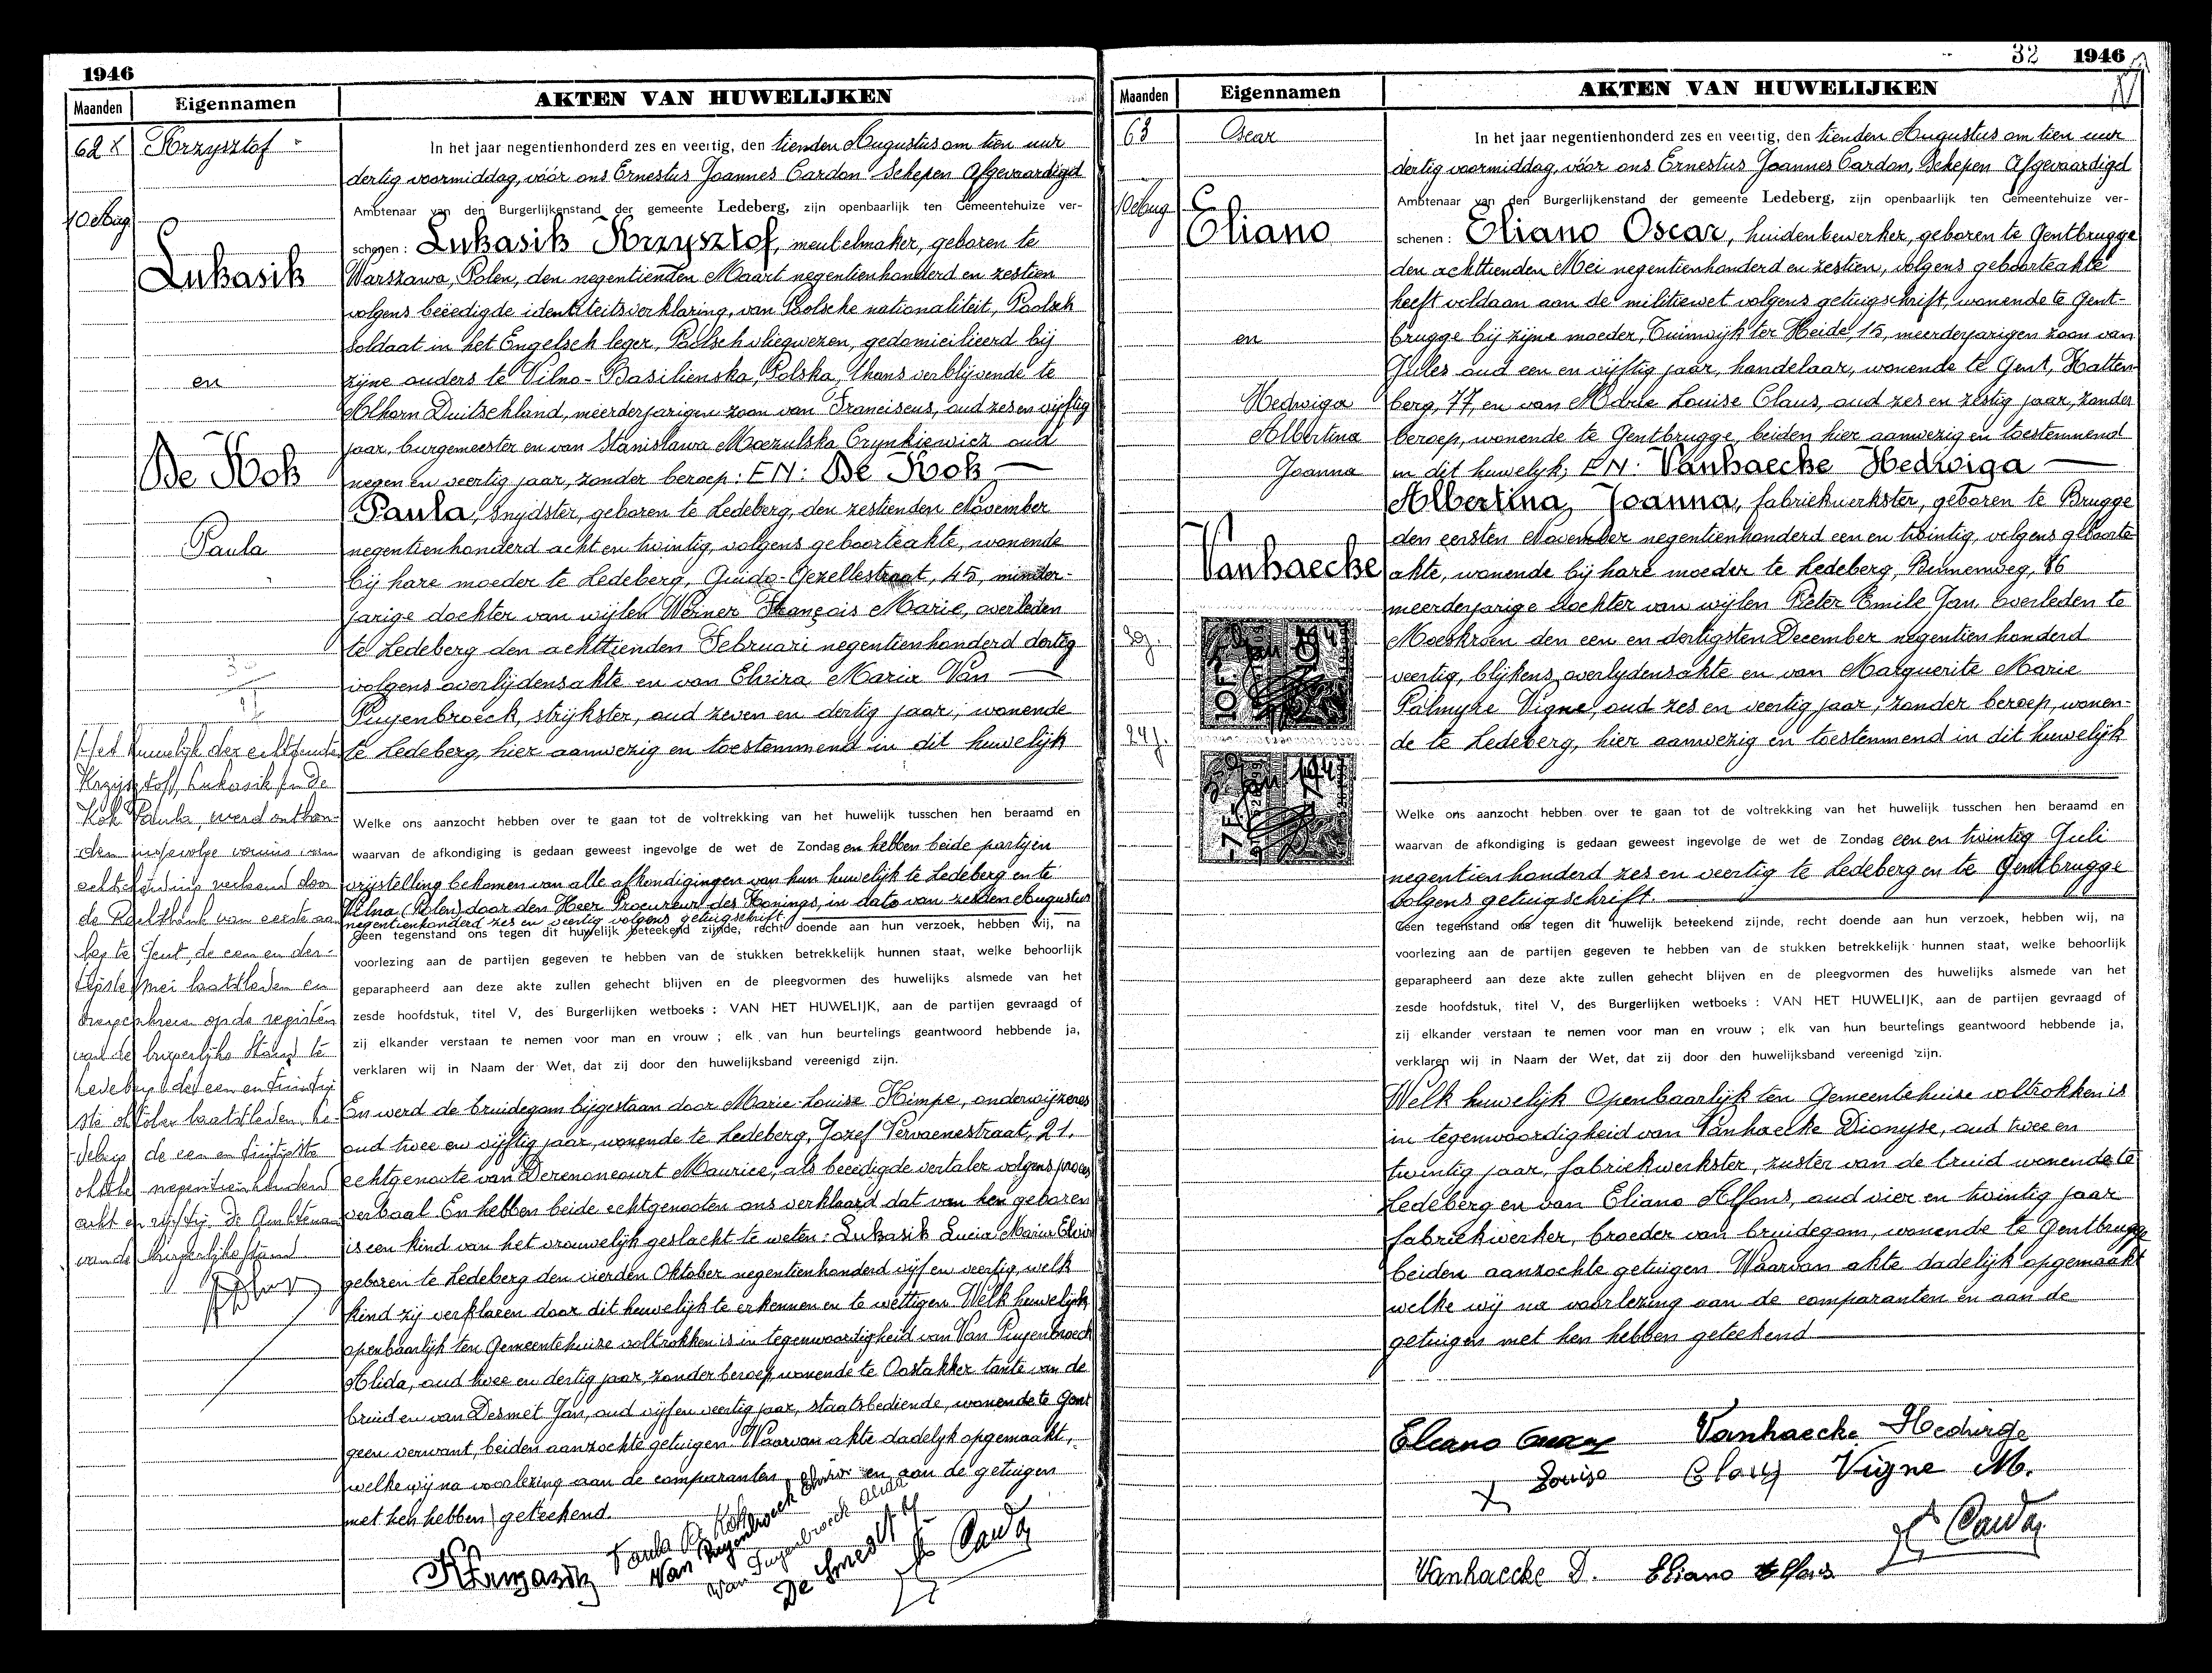 1946
Maanden
Eigennamen
AKTEN VAN HUWELIJKEN
62 X
Krzysztof
10 Aug
Lukasik
en
De Kok
Paula
In het jaar negentienhonderd zes en veertig, den tienden Augustus om tien uur
dertig voormiddag, vóór ons Ernestus Joannes Cardon Schepen Afgevaardigd
Ambtenaar van den Burgerlijkenstand der gemeente Ledeberg, zijn openbaarlijk ten Gemeentehuize ver-
schenen: Lukasik Krzysztof, meubelmaker, geboren te
Warszawa, Polen, den negentienden Maart negentienhonderd en zestien
volgens beëedigde identiteitsverklaring, van Poolsche nationaliteit, Poolsch
soldaat in het Engelsch leger, Poolsch vliegwezen, gedomicilieerd bij
zijne ouders te Vilno-Basilienska, Polska, thans verblijvende te
Alhorn Duitschland, meerderjarigen zoon van Franciscus, oud zes en vijftig
jaar, burgemeester en van Stanislawa Moczulska Crynkiewicz oud
negen en veertig jaar, zonder beroep: EN: De Kok
Paula, snijdster, geboren te Ledeberg, den zestienden November
negentienhonderd acht en twintig, volgens geboorteakte, wonende
bij hare moeder te Ledeberg, Guido-Gezellestraat, 45, minder-
jarige dochter van wijlen Werner François Marie, overleden
te Ledeberg den achttienden Februari negentienhonderd dertig
volgens overlijdensakte en van Elvira Maria Van
Puyenbroeck, strijkster, oud zeven en dertig jaar, wonende
te Ledeberg, hier aanwezig en toestemmend in dit huwelijk
Welke ons aanzocht hebben over te gaan tot de voltrekking van het huwelijk tusschen hen beraamd en
waarvan de afkondiging is gedaan geweest ingevolge de wet de Zondag en hebben beide partijen
vrijstelling bekomen van alle afkondigingen van hun huwelijk te Ledeberg en te
Vilna (Polen) door den Heer Procureur des Konings, in dato van zesden Augustus
negentienhonderd zes en veertig volgens getuigschrift.
Geen tegenstand ons tegen dit huwelijk beteekend zijnde, recht doende aan hun verzoek, hebben wij, na
voorlezing aan de partijen gegeven te hebben van de stukken betrekkelijk hunnen staat, welke behoorlijk
geparapheerd aan deze akte zullen gehecht blijven en de pleegvormen des huwelijks alsmede van het
zesde hoofdstuk, titel V, des Burgerlijken wetboeks : VAN HET HUWELIJK, aan de partijen gevraagd of
zij elkander verstaan te nemen voor man en vrouw ; elk van hun beurtelings geantwoord hebbende ja,
verklaren wij in Naam der Wet, dat zij door den huwelijksband vereenigd zijn.
En werd de bruidegom bijgestaan door Marie-Louise Kimpe, onderwijzeres
oud twee en vijftig jaar, wonende te Ledeberg, Jozef Vervaenestraat, 21.
echtgenoote van Derenoncourt Maurice, als beëedigde vertaler volgens proces
verbaal En hebben beide echtgenooten ons verklaard dat van hen geboren
is een kind van het vrouwelijk geslacht te weten: Lukasik Lucia Maria Elvira
geboren te Ledeberg den vierden Oktober negentienhonderd vijf en veertig, welk
kind zij verklaren door dit huwelijk te erkennen en te wettigen Welk huwelijk
openbaarlijk ten Gemeentehuize voltrokken is in tegenwoordigheid van Van Puyenbroeck
Alida, oud twee en dertig jaar, zonder beroep wonende te Oostakker tante van de
bruid en van Desmet Jan, oud vijf en veertig jaar, staatsbediende, wonende te Gent
geen verwant, beiden aanzochte getuigen. Waarvan akte dadelijk opgemaakt,
welke wij na voorlezing aan de comparanten en aan de getuigen
met hen hebben geteekend.
Het huwelijk der echtgenoten
Krzysztoff Lukasik en De
Kok Paula, werd ontbon-
den ingevolge vonnis van
echtscheiding verleend door
de Rechtbank van eerste aan
leg te Gent, de een en der-
tigste mei laatstleden en
overgeschreven op de registers
van de burgerlijke Stand te
Ledeberg de een en twintig
ste oktober laatstleden. Le-
deberg de een en twintigste
oktober negentienhonderd
acht en vijftig. De Ambtenaar
van de burgerlijke stand
Paula De Kok
Van Puyenbroeck Elvira
Van Puyenbroeck Alida
De Smedt
Cardon
32 1946
Maanden
Eigennamen
AKTEN VAN HUWELIJKEN
63
Oscar
10 Aug
Eliano
en
Hedwiga
Albertina
Joanna
Vanhaecke
30j.
24j.
10F
1947
7F
1947
In het jaar negentienhonderd zes en veertig, den tienden Augustus om tien uur
dertig voormiddag, vóór ons Ernestus Joannes Cardon, Schepen Afgevaardigd
Ambtenaar van den Burgerlijkenstand der gemeente Ledeberg, zijn openbaarlijk ten Gemeentehuize ver-
schenen: Eliano Oscar, huidenbewerker, geboren te Gentbrugge
den achttienden Mei negentienhonderd en zestien, volgens geboorteakte
heeft voldaan aan de militiewet volgens getuigschrift, wonende te Gent-
brugge bij zijne moeder, Tuinwijk ter Heide, 15, meerderjarigen zoon van
Jules oud een en vijftig jaar, handelaar, wonende te Gent, Katten-
berg, 77, en van Marie Louise Claus, oud zes en zestig jaar, zonder
beroep, wonende te Gentbrugge, beiden hier aanwezig en toestemmend
in dit huwelijk; EN: Vanhaecke Hedwiga
Albertina, Joanna, fabriekwerkster, geboren te Brugge
den eersten November negentienhonderd een en twintig, volgens geboorte-
akte, wonende bij hare moeder te Ledeberg, Binnenweg, 86
meerderjarige dochter van wijlen Pieter Emile Jan, overleden te
Moeskroen den een en dertigsten December negentien honderd
veertig, blijkens overlydensakte en van Marguerite Marie
Palmyre Vigne, oud zes en veertig jaar, zonder beroep, wonen-
de te Ledeberg, hier aanwezig en toestemmend in dit huwelijk
Welke ons aanzocht hebben over te gaan tot de voltrekking van het huwelijk tusschen hen beraamd en
waarvan de afkondiging is gedaan geweest ingevolge de wet de Zondag een en twintig Juli
negentienhonderd zes en veertig te Ledeberg en te Gentbrugge
volgens getuigschrift.
Geen tegenstand ons tegen dit huwelijk beteekend zijnde, recht doende aan hun verzoek, hebben wij, na
voorlezing aan de partijen gegeven te hebben van de stukken betrekkelijk hunnen staat, welke behoorlijk
geparapheerd aan deze akte zullen gehecht blijven en de pleegvormen des huwelijks alsmede van het
zesde hoofdstuk, titel V, des Burgerlijken wetboeks : VAN HET HUWELIJK, aan de partijen gevraagd of
zij elkander verstaan te nemen voor man en vrouw ; elk van hun beurtelings geantwoord hebbende ja,
verklaren wij in Naam der Wet, dat zij door den huwelijksband vereenigd zijn.
Welk huwelijk Openbaarlijk ten Gemeentehuize voltrokken is
in tegenwoordigheid van Vanhaecke Dionyse, oud twee en
twintig jaar, fabriekwerkster, zuster van de bruid wonende te
Ledeberg en van Eliano Alfons, oud vier en twintig jaar
fabriekwerker, broeder van bruidegom, wonende te Gentbrugge
beiden aanzochte getuigen. Waarvan akte dadelijk opgemaakt
welke wij na voorlezing aan de comparanten en aan de
getuigen met hen hebben geteekend
Eliano Oscar Vanhaecke Hedwige
Louise Claus Vigne M.
Cardon
Vanhaecke D. Eliano Alfons